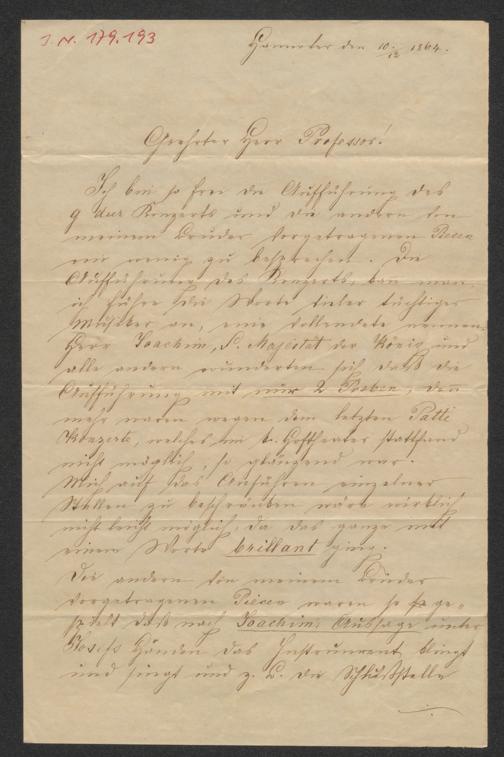 I. N. 179.193
Hannover den 10./12 1864.
Geehrter Herr Professor!
Ich bin so frei die Aufführung des
g dur Konzerts und die andern von
meinem Bruder vorgetragenen Piecen
ein wenig zu besprechen. Die
Aufführung des Konzerts, kan man,
ich führe die Worte vieler tüchtiger
Musiker an, eine vollendete nennen.
Herr Joachim, S. Majestät der König und
alle andern wunderten sich daß die
Aufführung mit nur 2 Proben, denn
mehr waren wegen dem letzten Patti
Konzerte, welches im k. Hoftheater stattfand
nicht möglich, so glänzend war.
Mich auf das Anführen einzelner
Stellen zu beschränken wäre wirklich
nicht leicht möglich, da das ganze mit
einem Worte brillant ging.
Die andern von meinem Bruder
vorgetragenen Piecen waren so ge-
spielt daß nach Joachims Aussage unter
Händen das Instrument klingt
und singt und z. B. die Schlußstelle